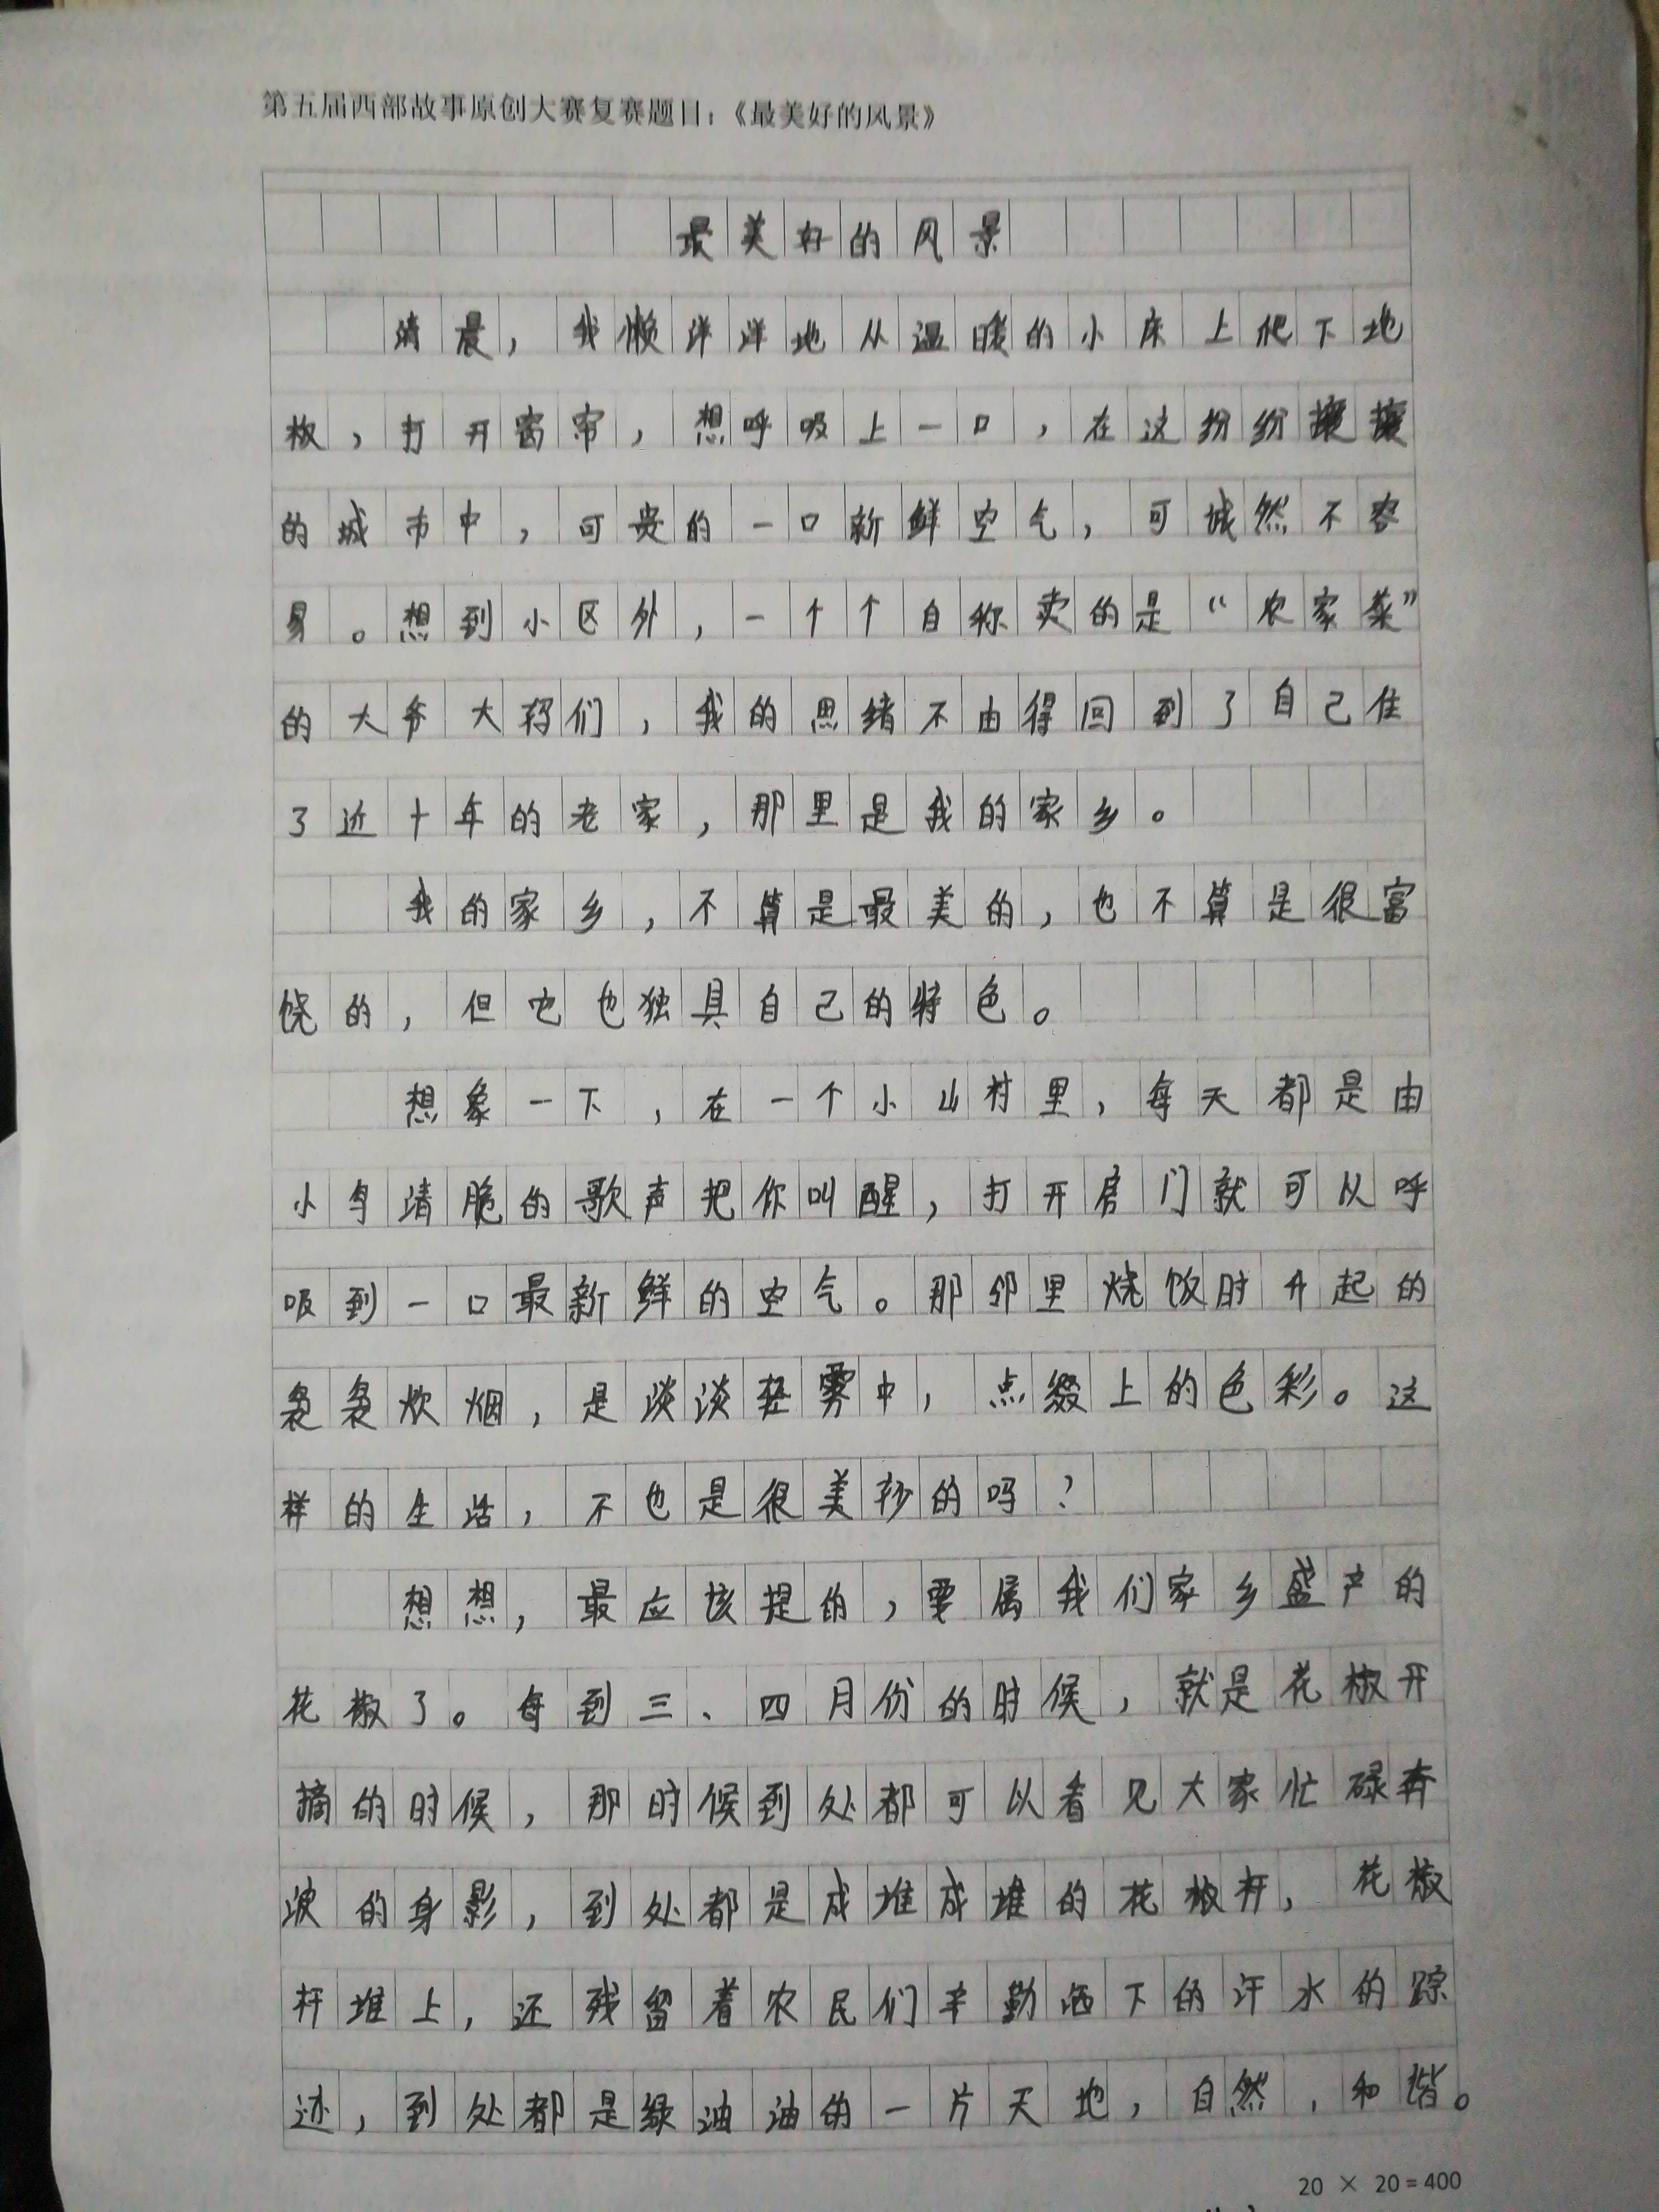 第五届西部故事原创大赛复赛题目：《最美好的风景》
最美好的风景
清晨，我懒洋洋地从温暖的小床上爬下地
板，打开窗帘，想呼吸上一口，在这纷纷攘攘
的城市中，可贵的一口新鲜空气，可诚然不容
易。想到小区外，一个个自称卖的是“农家菜”
的大爷大妈们，我的思绪不由得回到了自己住
了近十年的老家，那里是我的家乡。
我的家乡，不算是最美的，也不算是很富
饶的，但它也独具自己的特色。
想象一下，在一个小山村里，每天都是由
小鸟清脆的歌声把你叫醒，打开房门就可以呼
吸到一口最新鲜的空气。那邻里烧饭时升起的
袅袅炊烟，是淡淡轻雾中，点缀上的色彩。这
样的生活，不也是很美妙的吗？
想想，最应该提的，要属我们家乡盛产的
花椒了。每到三、四月份的时候，就是花椒开
摘的时候，那时候到处都可以看见大家忙碌奔
波的身影，到处都是成堆成堆的花椒杆，花椒
杆堆上，还残留着农民们辛勤洒下的汗水的踪
迹，到处都是绿油油的一片天地，自然，和谐。
20 × 20=400